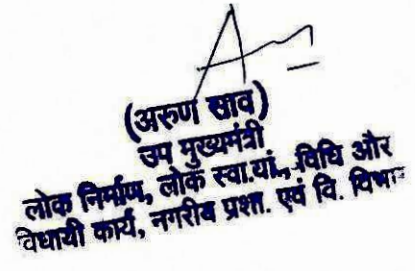 (अरुण साव)
उप मुख्यमंत्री
लोक निर्माण, लोक स्वा.यां., विधि और
विधायी कार्य, नगरीय प्रशा. एवं वि. विभाग